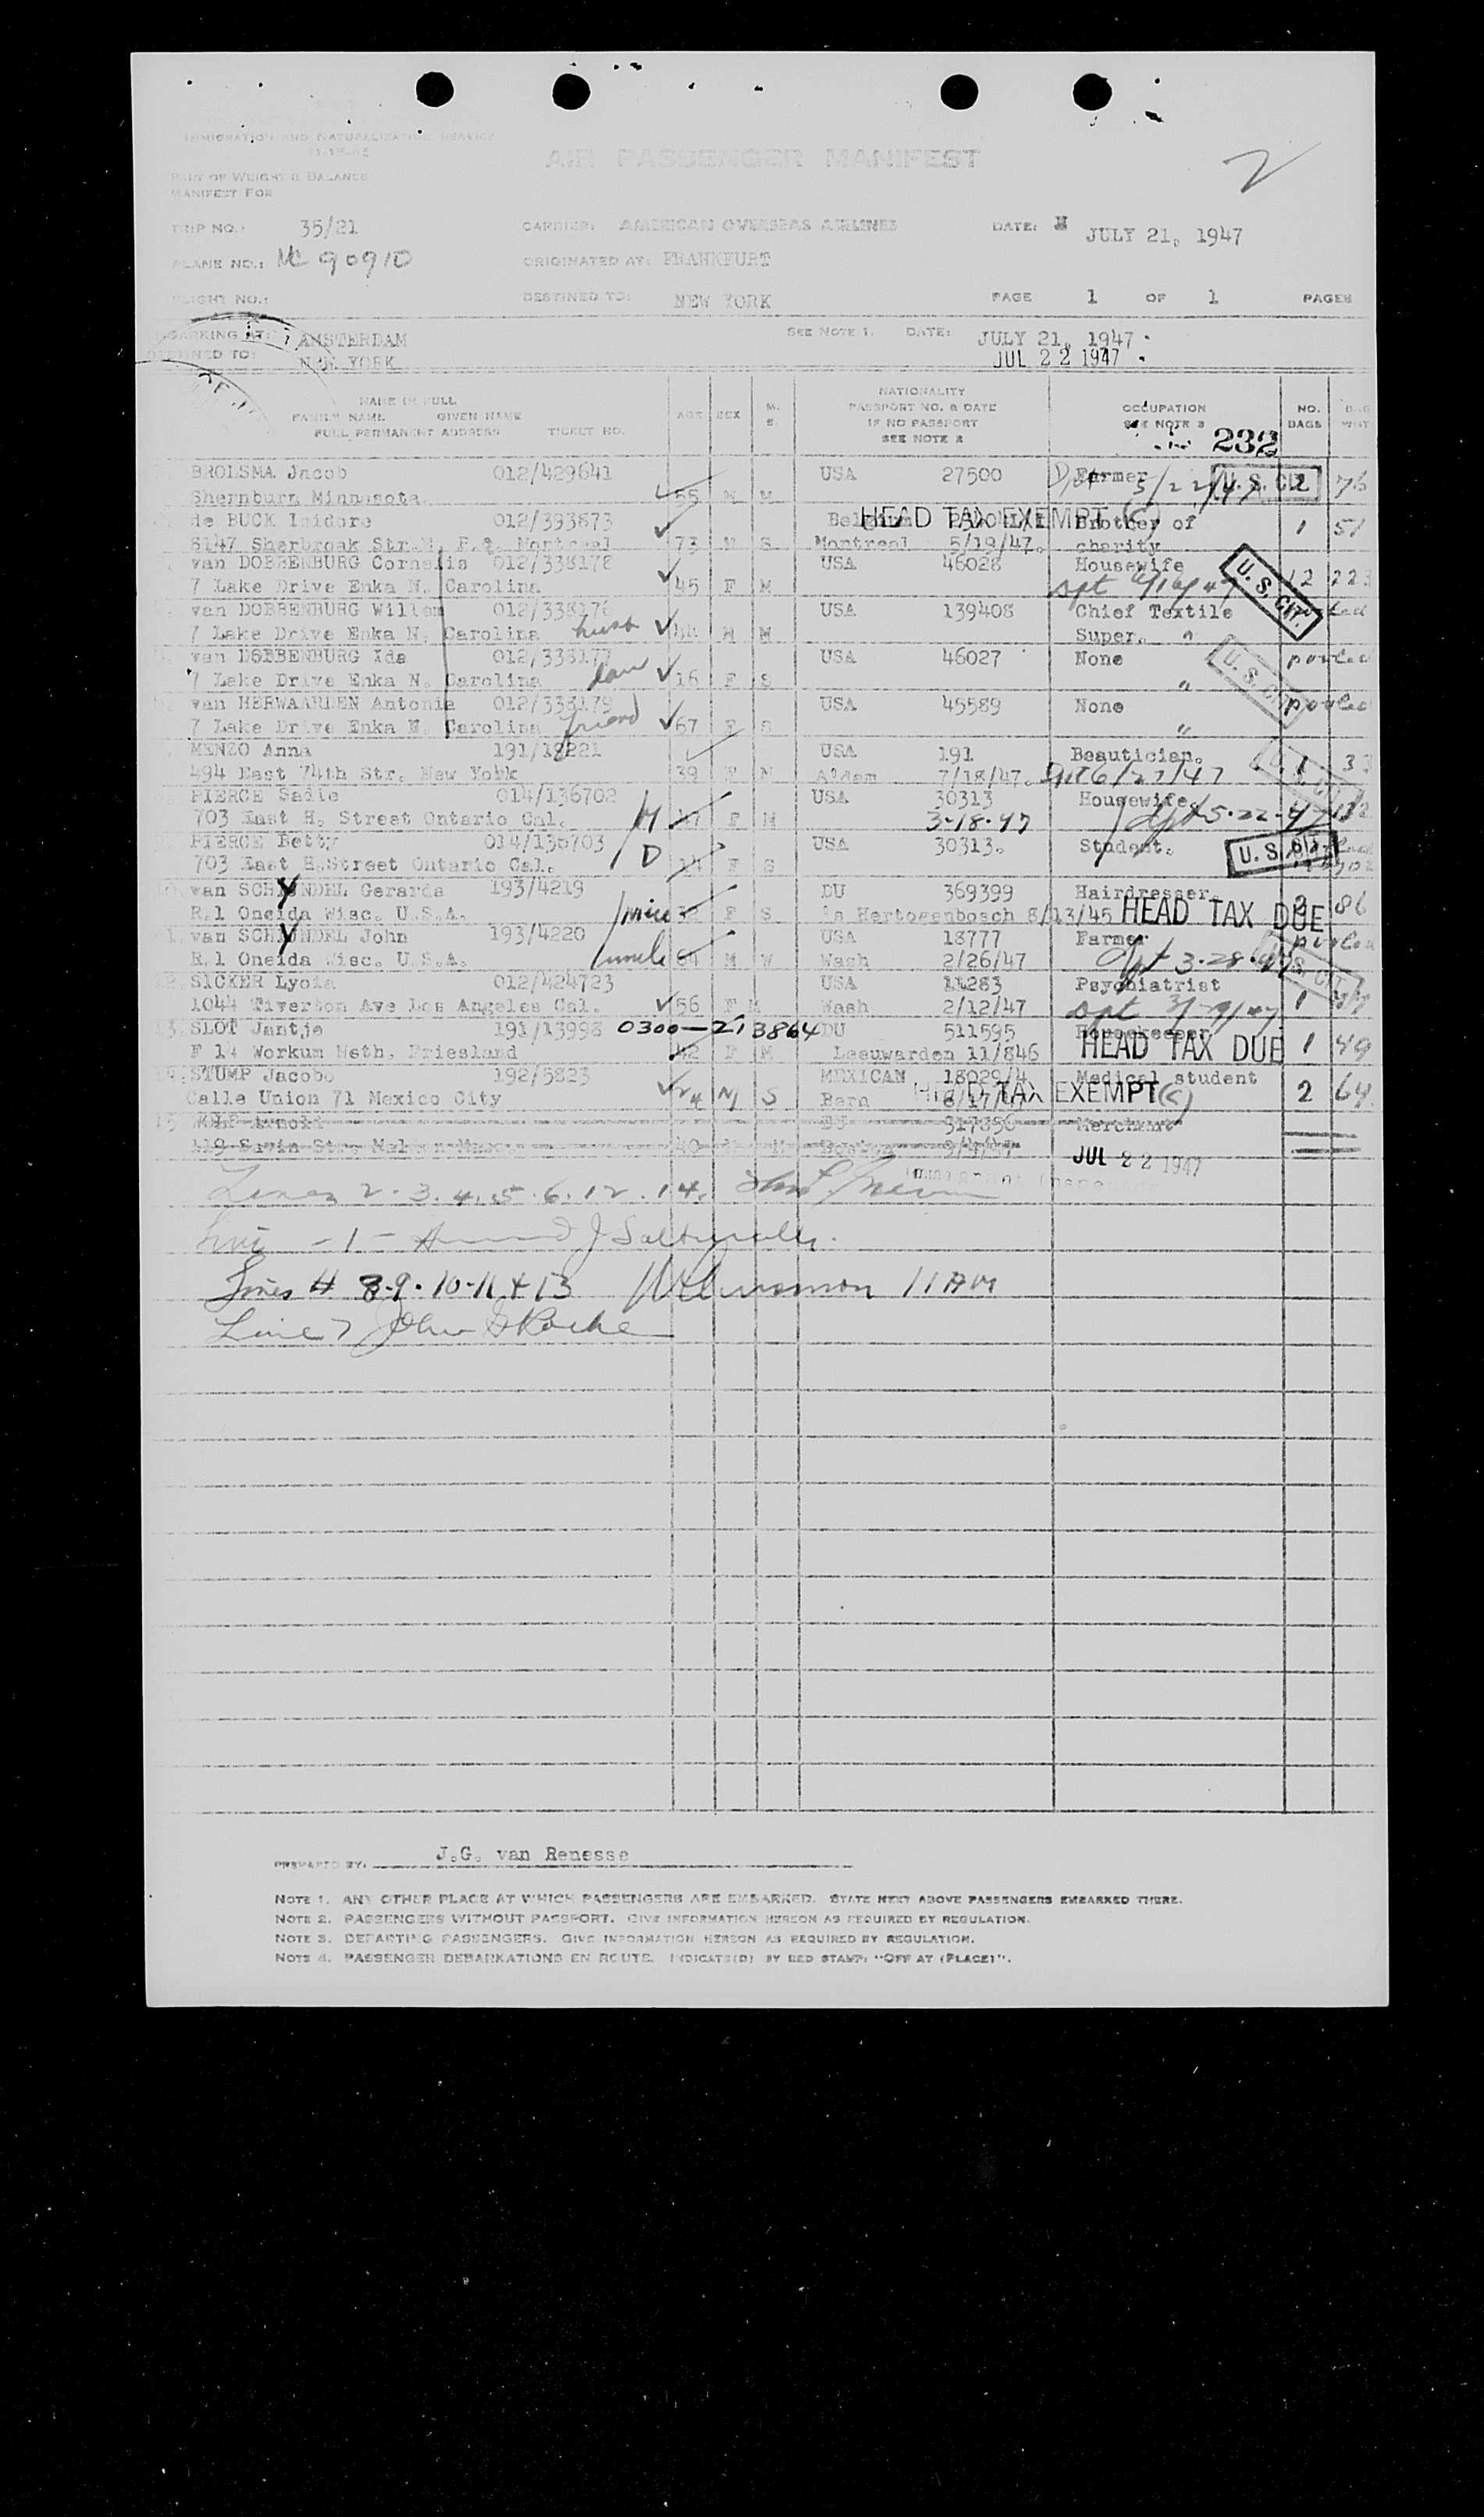 IMMIGRATION AND NATURALIZATION SERVICE
AIR PASSENGER MANIFEST
2
PART OF WEIGHT & BALANCE
MANIFEST FOR
TRIP NO.: 35/21 CARRIER: AMERICAN OVERSEAS AIRLINES DATE: JULY 21, 1947
PLANE NO.: NC 90910 ORIGINATED AT: FRANKFURT
FLIGHT NO.: DESTINED TO: NEW YORK PAGE 1 OF 1 PAGES
EMBARKING AT: AMSTERDAM SEE NOTE 1. DATE: JULY 21, 1947
DESTINED TO: NEW YORK JUL 22 1947
NAME IN FULL
FAMILY NAME GIVEN NAME
FULL PERMANENT ADDRESS TICKET NO.
AGE SEX M. S.
NATIONALITY
PASSPORT NO. & DATE
IF NO PASSPORT
SEE NOTE 2
OCCUPATION
SEE NOTE 3
NO. BAGS
232
BROLSMA Jacob 012/429641 USA 27500 Farmer U.S. CIT. 2 76
Shernburn Minnusota 55 M M
de BUCK Isidore 012/393673 HEAD TAX EXEMPT Brother of 1 51
6147 Sherbrook Str.W. P.Q. Montreal 73 M S Montreal 5/19/47. charity
van DOBBENBURG Cornelis 012/338178 USA 46028 Housewife U.S. CIT. 12 223
7 Lake Drive Enka N. Carolina 45 F M
van DOBBENBURG Willem 012/338176 USA 139408 Chief Textile
7 Lake Drive Enka N. Carolina husb M M Super. "
van DOBBENBURG Ida 012/338177 USA 46027 None pooled
7 Lake Drive Enka N. Carolina dau 16 F S " U.S. CIT.
van HERWAARDEN Antonia 012/338179 USA 45589 None pooled
7 Lake Drive Enka N. Carolina friend 67 F S "
MENZO Anna 191/18221 USA 191 Beautician. 1 33
494 East 74th Str. New York 39 F M A'dam 7/18/47. Dpt 6/27/47
PIERCE Sadie 014/136702 USA 30313 Housewife.
703 East H. Street Ontario Cal. M 47 F M 3-18-47 dpt 5-22-47
PIERCE Betty 014/136703 USA 30313. Student. U.S. CIT.
703 East H.Street Ontario Cal. D 14 F S
10. van SCHYNDEL Gerarda 193/4219 DU 369399 Hairdresser. 86
R.1 Oneida Wisc. U.S.A. niece F S 's Hertogenbosch 8/13/45 HEAD TAX DUE
van SCHYNDEL John 193/4220 USA 18777 Farmer pooled
R.1 Oneida Wisc. U.S.A. uncle 64 M W Wash 2/26/47 dpt 3-28-47 U.S. CIT.
12. SICKER Lydia 012/424723 USA 11283 Psychiatrist
1044 Tiverton Ave Los Angeles Cal. 56 F M Wash 2/12/47 dpt 1
13. SLOT Jantje 191/13998 0300-213864 DU 511595 Housekeeper
F 14 Workum Neth. Friesland 42 F M Leeuwarden 11/846 HEAD TAX DUE 1 49
14. STUMP Jacobo 192/5823 MEXICAN 18029/4 Medical student
Calle Union 71 Mexico City 24 M S Bern HEAD TAX EXEMPT (c) 2 64
15. Arnold 317356 Merchant
Str. 40 Boston JUL 22 1947
Immigrant Inspector
Lines 2.3.4.5.6.12.14.
Line -1-
Lines # 8-9-10-11 & 13
Line 7 John
PREPARED BY: J.G. van Renesse
NOTE 1. ANY OTHER PLACE AT WHICH PASSENGERS ARE EMBARKED. STATE NEXT ABOVE PASSENGERS EMBARKED THERE.
NOTE 2. PASSENGERS WITHOUT PASSPORT. GIVE INFORMATION HEREON AS REQUIRED BY REGULATION.
NOTE 3. DEPARTING PASSENGERS. GIVE INFORMATION HEREON AS REQUIRED BY REGULATION.
NOTE 4. PASSENGER DEBARKATIONS EN ROUTE. INDICATE(D) BY RED STAMP: "OFF AT (PLACE)".